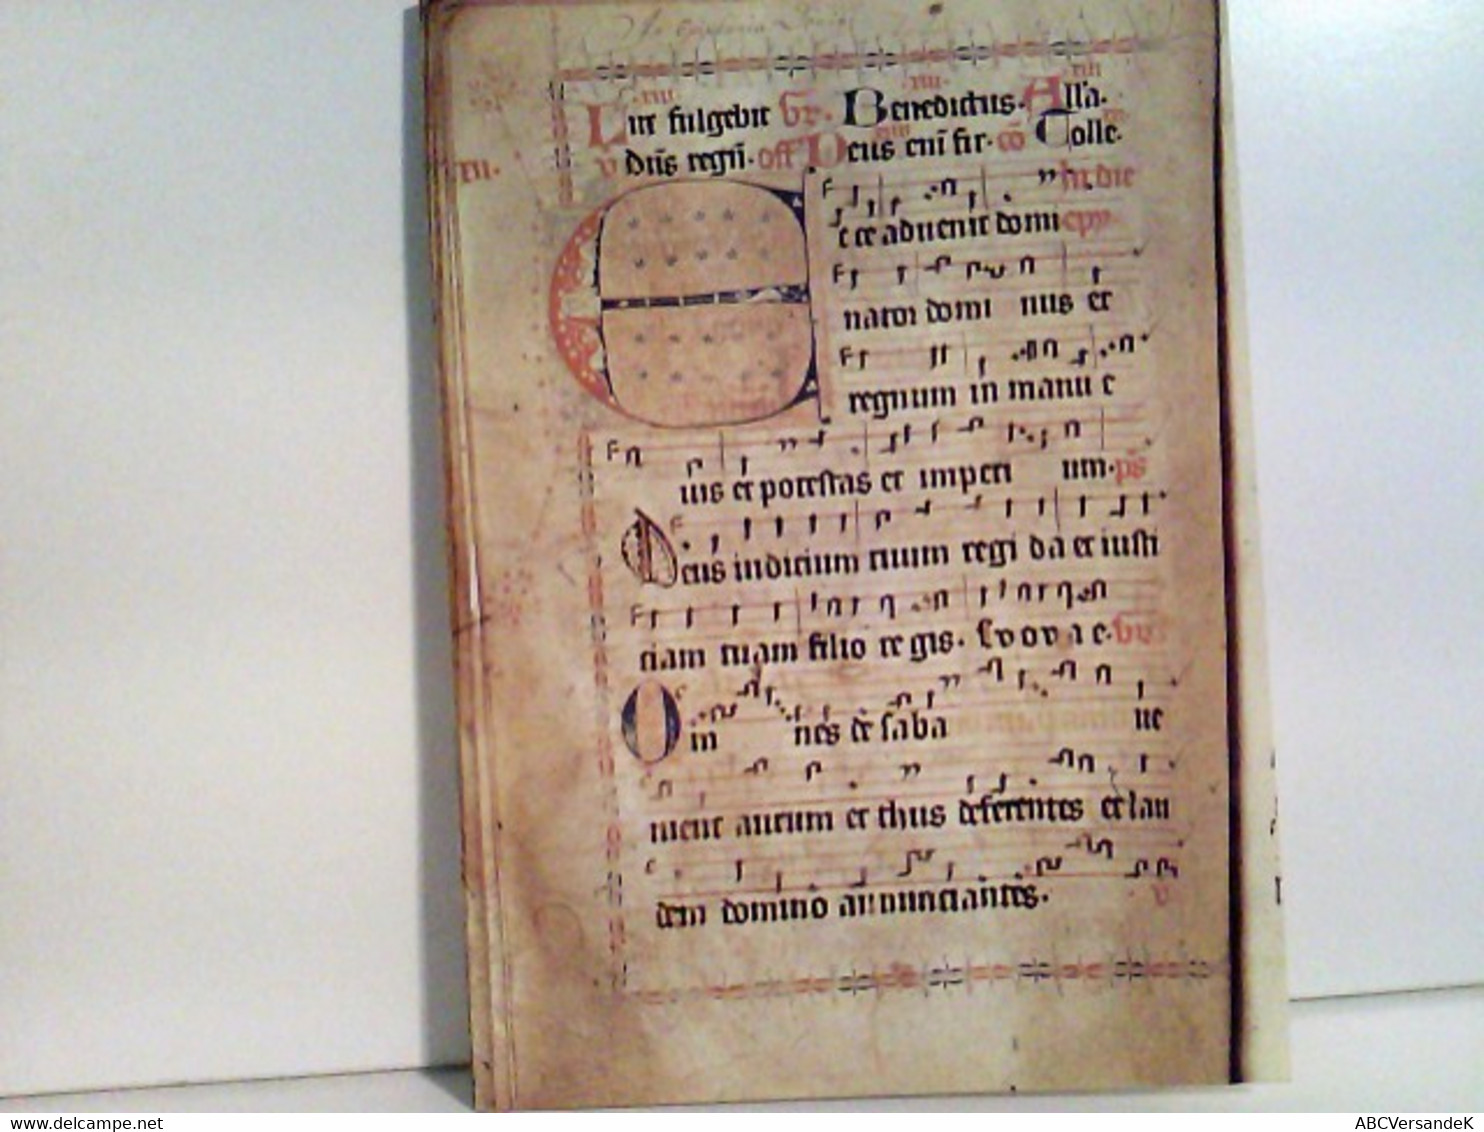 Lux fulgebit Gr. Benedictus. Alla.
v dns regn. off Deus eni fir. co Tolle.
In die
cce aduenit domi epy
nator domi nus et
regnum in manu e
ius et potestas et imperi um. ps
Deus iudicium tuum regi da et iusti
ciam tuam filio re gis. Evovae. Gr
Om nes de saba ue
nient aurum et thus deferentes et lau
dem domino annunciantes. v
delcampe.net
ABCVersandeK